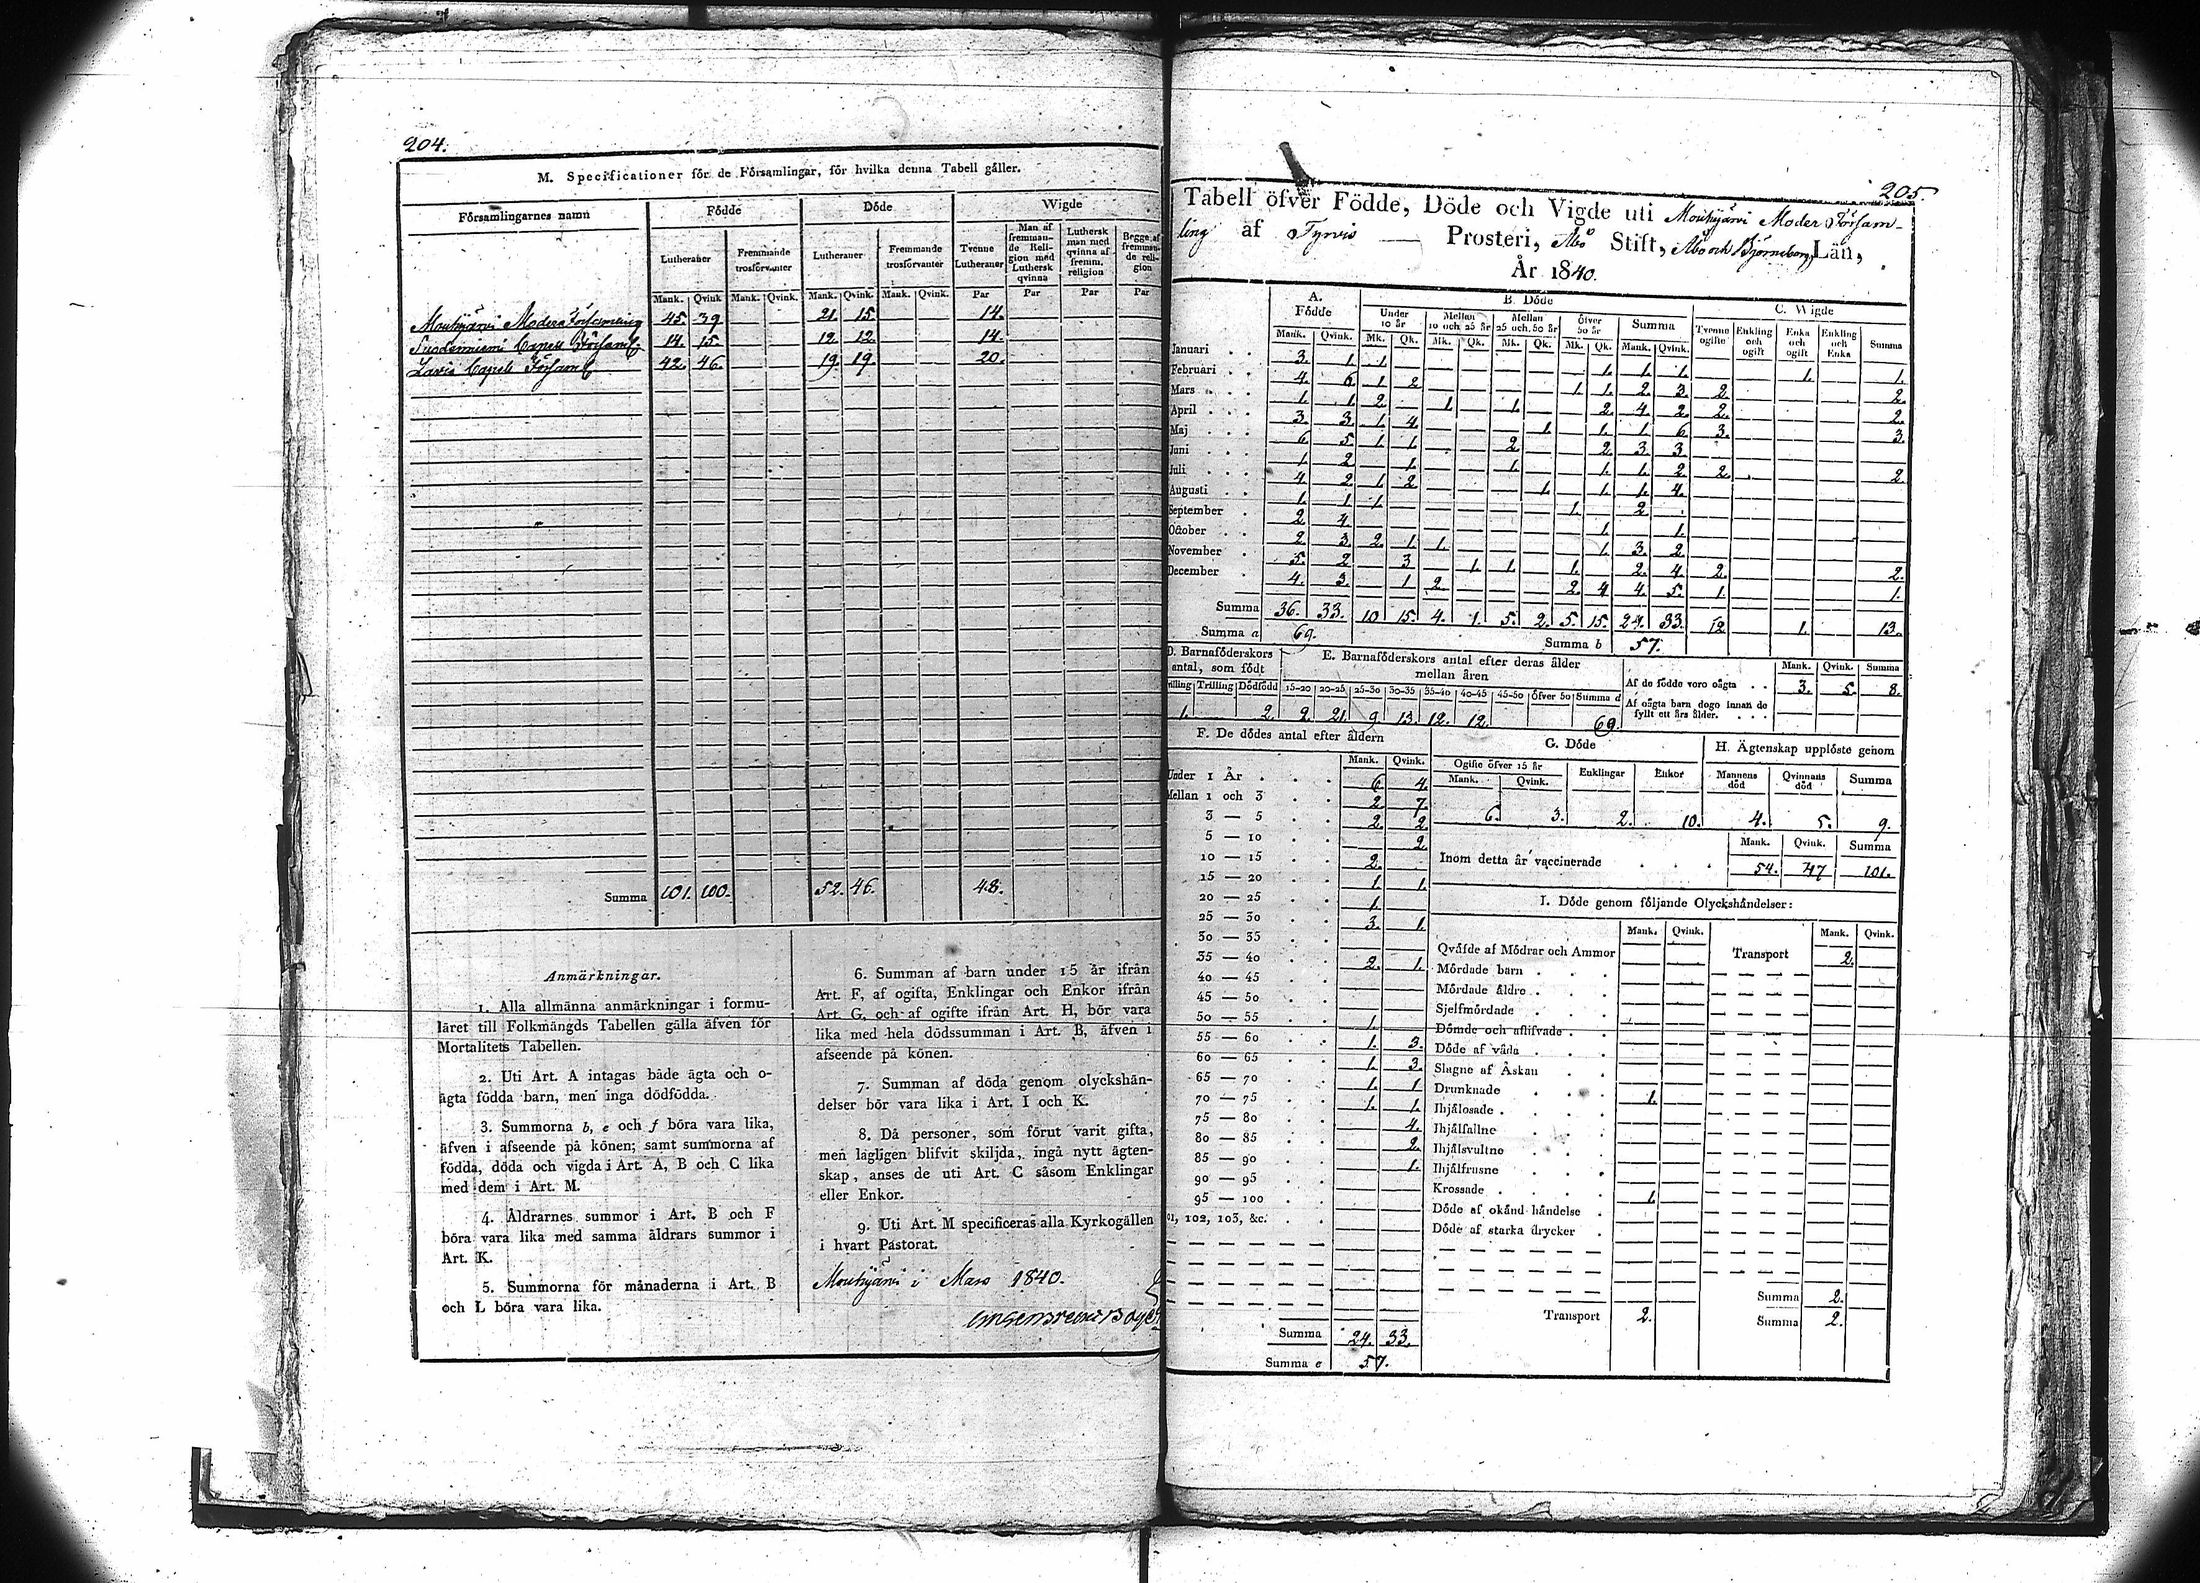 204.
M. Specificationer för de Församlingar, för hvilka denna Tabell gäller.
Församlingarnes namn Födde Döde Wigde
Lutheraner Fremmande trosförvanter Lutheraner Fremmande trosförvanter Tvenne Lutheraner Man af fremmande Religion med Luthersk qvinna Luthersk man med qvinna af fremm. religion Begge af fremmande religion
Mank. Qvink Mank. Qvink. Mank. Qvink. Mank. Qvink. Par Par Par Par
Mouhijärvi Moders Församling 45. 39 21. 15. 14.
Suodenniemi Capells Församl 14. 15. 12. 12. 14.
Lavia Capells Församl 42. 46. 19. 19. 20.
Summa 101. 100. 52. 46. 48.
Anmärkningar.
1. Alla allmänna anmärkningar i formu-
läret till Folkmängds Tabellen gälla äfven för
Mortalitets Tabellen.
2. Uti Art. A intagas både ägta och o-
ägta födda barn, men inga dödfödda.
3. Summorna b, e och f böra vara lika,
äfven i afseende på könen; samt summorna af
födda, döda och vigda i Art. A, B och C lika
med dem i Art. M.
4. Åldrarnes summor i Art. B och F
böra vara lika med samma åldrars summor i
Art. K.
5. Summorna för månaderna i Art. B
och L böra vara lika.
6. Summan af barn under 15 år ifrån
Art. F, af ogifta, Enklingar och Enkor ifrån
Art. G, och af ogifte ifrån Art. H, bör vara
lika med hela dödssumman i Art. B, äfven i
afseende på könen.
7. Summan af döda genom olyckshän-
delser bör vara lika i Art. I och K.
8. Då personer, som förut varit gifta,
men lagligen blifvit skiljda, ingå nytt ägten-
skap, anses de uti Art. C såsom Enklingar
eller Enkor.
9. Uti Art. M specificeras alla Kyrkogällen
i hvart Pastorat.
Mouhijärvi i Mars 1840.
205.
Tabell öfver Födde, Döde och Vigde uti Mouhijärvi Moder Församling
af Tyrvis Prosteri, Åbo Stift, Åbo och Björneborgs Län,
År 1840.
A. Födde B. Döde C. Wigde
Under 10 år Mellan 10 och 25 år Mellan 25 och 50 år Öfver 50 år Summa Tvenne ogifte Enkling och ogift Enka och ogift Enkling och Enka Summa
Mank. Qvink. Mk. Qk. Mk. Qk. Mk. Qk. Mk. Qk. Mank. Qvink.
Januari 3. 1. 1. 1. 1. 1. 1. 1.
Februari 4. 6. 1. 2 1. 1. 2. 3. 2. 2.
Mars 1. 1. 2. 1. 1. 2. 4. 2. 2. 2.
April 3. 3. 1. 4. 1. 1. 1. 6. 3. 3.
Maj 6. 5. 1. 1. 2. 2. 3. 3.
Juni 1. 2. 1. 1. 1. 1. 2. 2. 2.
Juli 4. 2. 1. 2. 1. 1. 1. 4.
Augusti 1. 1. 1. 1. 2.
September 2. 4. 1. 1.
October 2. 3. 2. 1. 1. 1. 3. 2.
November 5. 2. 3. 1. 1. 1. 2. 4. 2. 2.
December 4. 3. 1. 2. 2. 4. 4. 5. 1. 1.
Summa 36. 33. 10 15. 4. 1. 5. 2. 5. 15. 24. 33. 12 1. 13.
Summa a 69. Summa b 57.
D. Barnaföderskors antal, som födt
Trilling Dödfödd
1. 2.
E. Barnaföderskors antal efter deras ålder mellan åren
15-20 20-25 25-30 30-35 35-40 40-45 45-50 öfver 50 Summa d
2. 21. 9. 13. 12. 12. 69.
Mank. Qvink. Summa
Af de födde voro oägta 3. 5. 8.
Af oägta barn dogo innan de fyllt ett års ålder.
F. De dödes antal efter åldern
Mank. Qvink.
Under 1 År 6. 4.
Mellan 1 och 3 2. 7.
3 — 5 2. 2.
5 — 10 2.
10 — 15 2.
15 — 20 1. 1.
20 — 25 1.
25 — 30 3. 1.
30 — 35
35 — 40 2. 1.
40 — 45
45 — 50
50 — 55 1.
55 — 60 1. 3.
60 — 65 1. 3.
65 — 70 1. 1
70 — 75 1. 1.
75 — 80 4.
80 — 85 2.
85 — 90 1.
90 — 95
95 — 100
101, 102, 103, &c.
Summa 24. 33.
Summa e 57.
G. Döde
Ogifte öfver 15 år Enklingar Enkor
Mank. Qvink.
6. 3. 2. 10.
H. Ägtenskap upplöste genom
Mannens död Qvinnans död Summa
4. 5. 9.
Mank. Qvink. Summa
Inom detta år vaccinerade 54. 47 101.
I. Döde genom följande Olyckshändelser:
Mank. Qvink. Mank. Qvink.
Qväfde af Mödrar och Ammor Transport 2.
Mördade barn
Mördade äldre
Sjelfmördade
Dömde och aflifvade
Döde af våda
Slagne af Åskan
Drunknade 1.
Ihjälosade
Ihjälfallne
Ihjälsvultne
Ihjälfrusne
Krossade 1.
Döde af okänd händelse
Döde af starka drycker
Summa 2.
Transport 2. Summa 2.